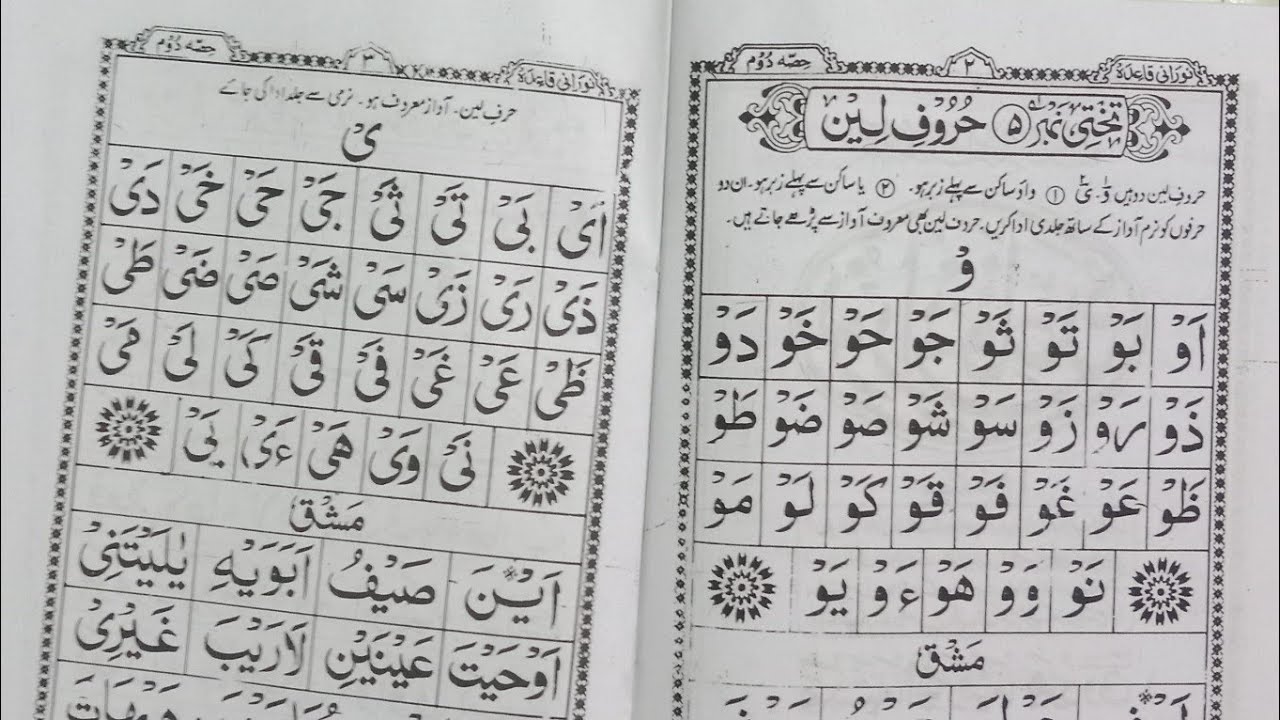 نورانی قاعدہ ۲ حصّہ دُوُم
تختی نمبر ۵ حُرُوفِ لِیْن
حروفِ لین دو ہیں وْ۔ یْ ① واؤ ساکن سے پہلے زبر ہو۔ ② یا ساکن سے پہلے زبر ہو۔ ان دو
حرفوں کو نرم آواز کے ساتھ جلدی ادا کریں۔ حروف لین بھی معروف آواز سے پڑھے جاتے ہیں۔
وْ
اَوْ بَوْ تَوْ ثَوْ جَوْ حَوْ خَوْ دَوْ
ذَوْ رَوْ زَوْ سَوْ شَوْ صَوْ ضَوْ طَوْ
ظَوْ عَوْ غَوْ فَوْ قَوْ كَوْ لَوْ مَوْ
نَوْ وَوْ هَوْ ءَوْ یَوْ
مَشْق
نورانی قاعدہ ۳ حصّہ دُوُم
حرفِ لین۔ آواز معروف ہو۔ نرمی سے جلد ادا کی جائے
یْ
اَیْ بَیْ تَیْ ثَیْ جَیْ حَیْ خَیْ دَیْ
ذَیْ رَیْ زَیْ سَیْ شَیْ صَیْ ضَیْ طَیْ
ظَیْ عَیْ غَیْ فَیْ قَیْ كَیْ لَیْ مَیْ
نَیْ وَیْ هَیْ ءَیْ یَیْ
مَشْق
اَیْنَ صَیْفُ اَبَوَیْهِ یٰلَیْتَنِیْ
اَوْحَیْتَ عَیْنَیْنِ لَارَیْبَ غَیْرِیْ